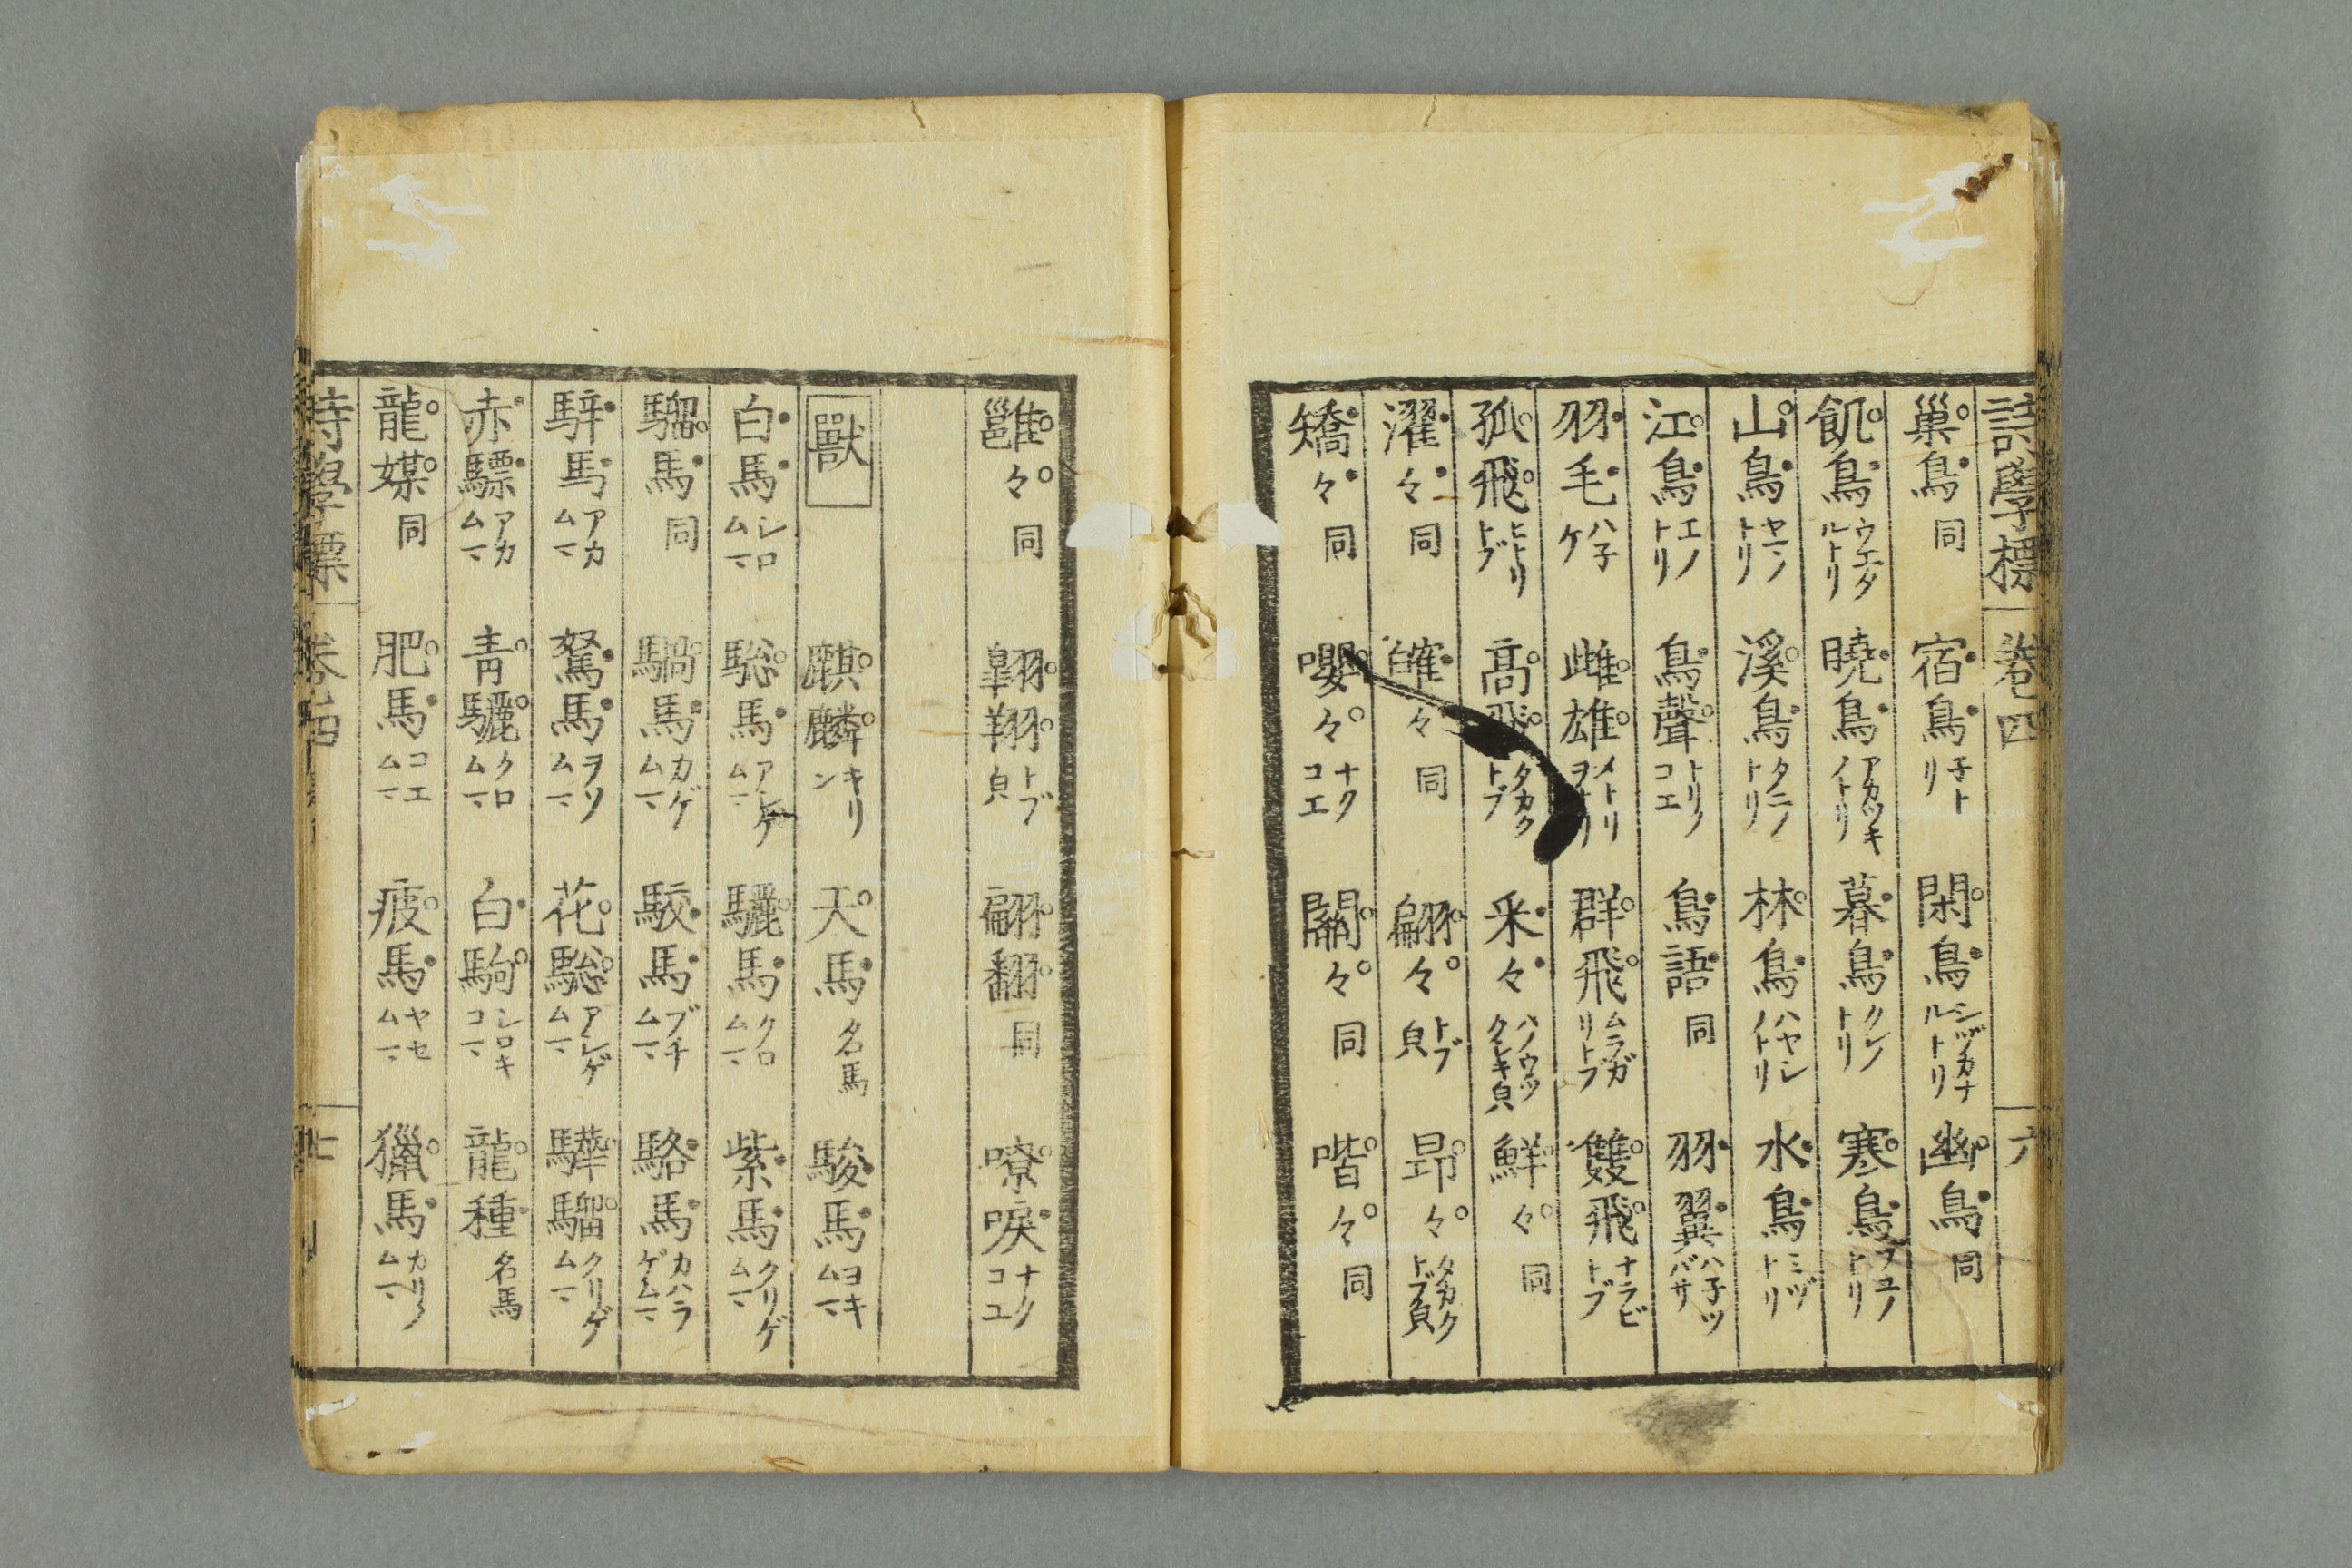 詩學標 卷四 六
巢鳥 同 宿鳥 子トリ 閑鳥 シヅカナルトリ 幽鳥 同
飢鳥 ウエタルトリ 曉鳥 アカツキノトリ 暮鳥 クレノトリ 寒鳥 フユノトリ
山鳥 ヤマノトリ 溪鳥 タニノトリ 林鳥 ハヤシノトリ 水鳥 ミヅトリ
江鳥 エノトリ 鳥聲 トリノコエ 鳥語 同 羽翼 ハ子ツバサ
羽毛 ハ子ケ 雌雄 メトリヲトリ 群飛 ムラガリトブ 雙飛 ナラビトブ
孤飛 ヒトリトブ 高飛 タカクトブ 采々 ハノウツクシキ皃 鮮々 同
濯々 同 々 同 翩々 トブ皃 昂々 タカクトブ皃
矯々 同 嚶々 ナクコエ 關々 同 喈々 同
雝々 同 翺翔 トブ皃 翩翻 同 嘹唳 ナクコエ
獸 麒麟 キリン 天馬 名馬 駿馬 ヨキムマ
白馬 シロムマ 驄馬 アシゲムマ 驪馬 クロムマ 紫馬 クリゲムマ
騮馬 同 騧馬 カゲムマ 駮馬 ブチムマ 駱馬 カハラゲムマ
騂馬 アカムマ 駑馬 ヲソムマ 花驄 アシゲムマ 驊騮 クリゲムマ
赤驃 アカムマ 青驪 クロムマ 白駒 シロキコマ 龍種 名馬
龍媒 同 肥馬 コエムマ 疲馬 ヤセムマ 獵馬 カリノムマ
詩學標 卷四 七